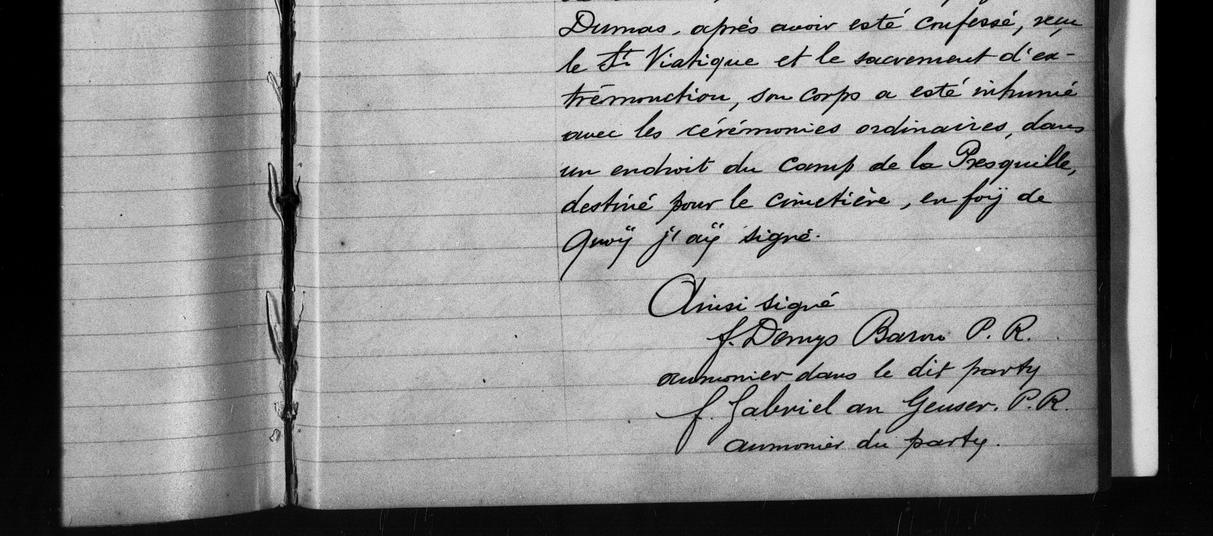 Dumas, après avoir esté confessé, reçu
le St. Viatique et le sacrement d'ex-
trémonction, son corps a esté inhumé
avec les cérémonies ordinaires, dans
un endroit du camp de la Presquille,
destiné pour le cimetière, en foÿ de
quoÿ j'aÿ signé.
Ainsi signé
f. Denys Baron P. R.
aumonier dans le dit party
f. Gabriel an Geuser. P. R.
aumonier du party.